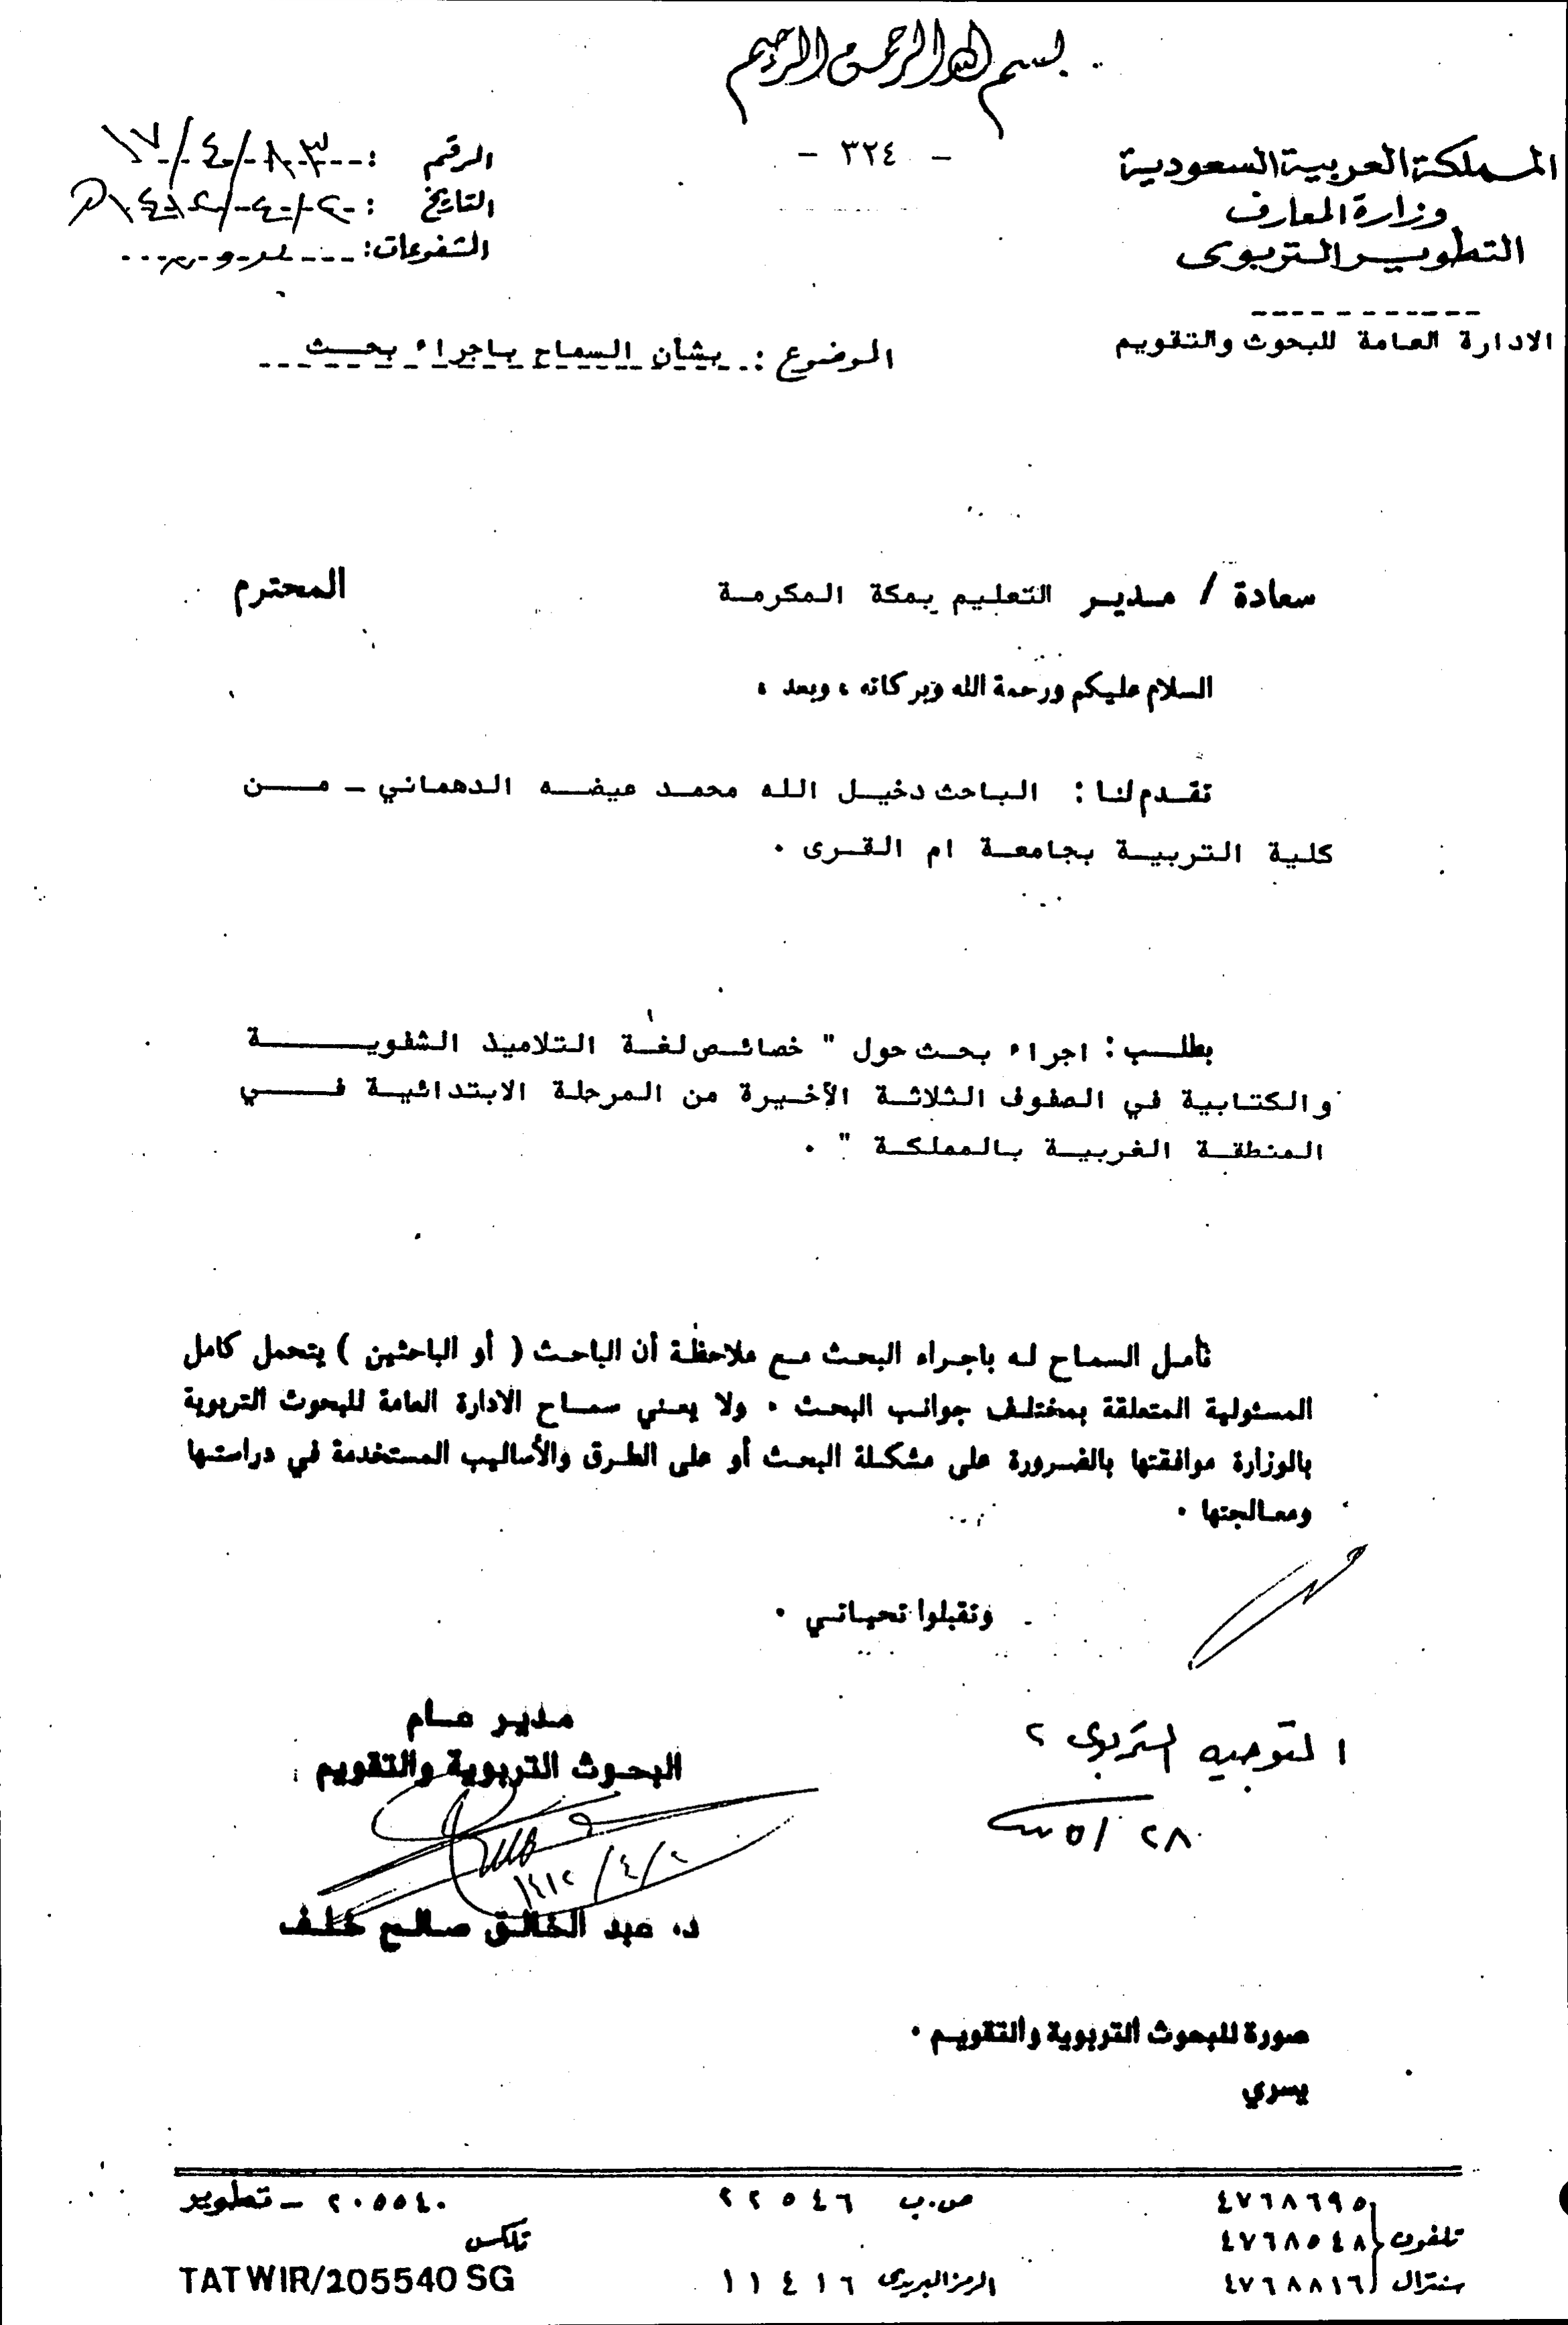 بسم الله الرحمن الرحيم
المملكة العربية السعودية
وزارة المعارف
التطوير التربوى
الادارة العامة للبحوث والتقويم
- ٣٢٤ -
الرقم :
التاريخ : ٢/٤/١٤١٢هـ
المشفوعات : بدون
الموضوع : بشأن السماح باجراء بحث
سعادة / مدير التعليم بمكة المكرمة المحترم
السلام عليكم ورحمة الله وبركاته ، وبعد ،
تقدم لنا : الباحث دخيل الله محمد عيضه الدهماني - من
كلية التربية بجامعة ام القرى .
بطلب : اجراء بحث حول " خصائص لغة التلاميذ الشفوية
والكتابية في الصفوف الثلاثة الأخيرة من المرحلة الابتدائية في
المنطقة الغربية بالمملكة " .
نأمل السماح له باجراء البحث مع ملاحظة أن الباحث ( أو الباحثين ) يتحمل كامل
المسئولية المتعلقة بمختلف جوانب البحث . ولا يعني سماح الادارة العامة للبحوث التربوية
بالوزارة موافقتها بالضرورة على مشكلة البحث أو على الطرق والأساليب المستخدمة في دراستها
ومعالجتها .
وتقبلوا تحياتي .
مدير عام
البحوث التربوية والتقويم
١٤١٢/٤/٢
د. عبد الخالق صالح خلف
التوجيه التربوى
٥/٢٨
صورة للبحوث التربوية والتقويم .
يسري
تلفون ٤٧٦٨٦٩٥
٤٧٦٨٥٤٨
سنترال ٤٧٦٨٨١٦
ص.ب ٢٢٥٤٦
الرمز البريدى ١١٤١٦
٢٠٥٥٤٠ - تطوير
تلكس
TATWIR/205540 SG